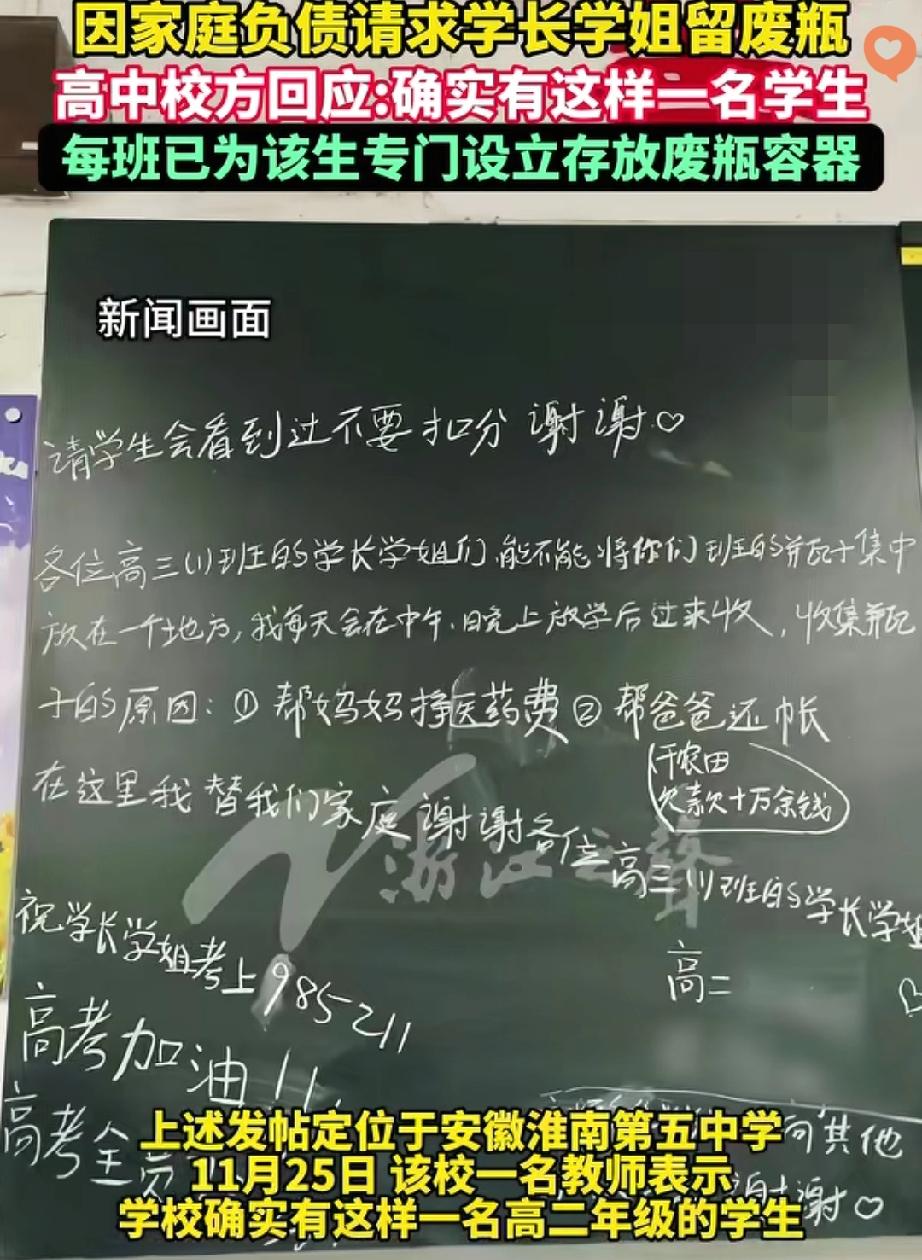 因家庭负债请求学长学姐留废瓶
高中校方回应:确实有这样一名学生
每班已为该生专门设立存放废瓶容器
新闻画面
请学生会看到过不要扣分 谢谢♡
各位高三(1)班的学长学姐们能不能将你们班的瓶子集中
放在一个地方,我每天会在中午、晚上放学后过来收,收集瓶
子的原因:① 帮妈妈挣医药费 ② 帮爸爸还帐
干农田
欠款十万余钱
在这里我替我们家庭谢谢各位高三(1)班的学长学姐
浙江之声
祝学长学姐考上985 211
高二
高考加油!!
高考全员
向其他
谢♡
上述发帖定位于安徽淮南第五中学
11月25日 该校一名教师表示
学校确实有这样一名高二年级的学生